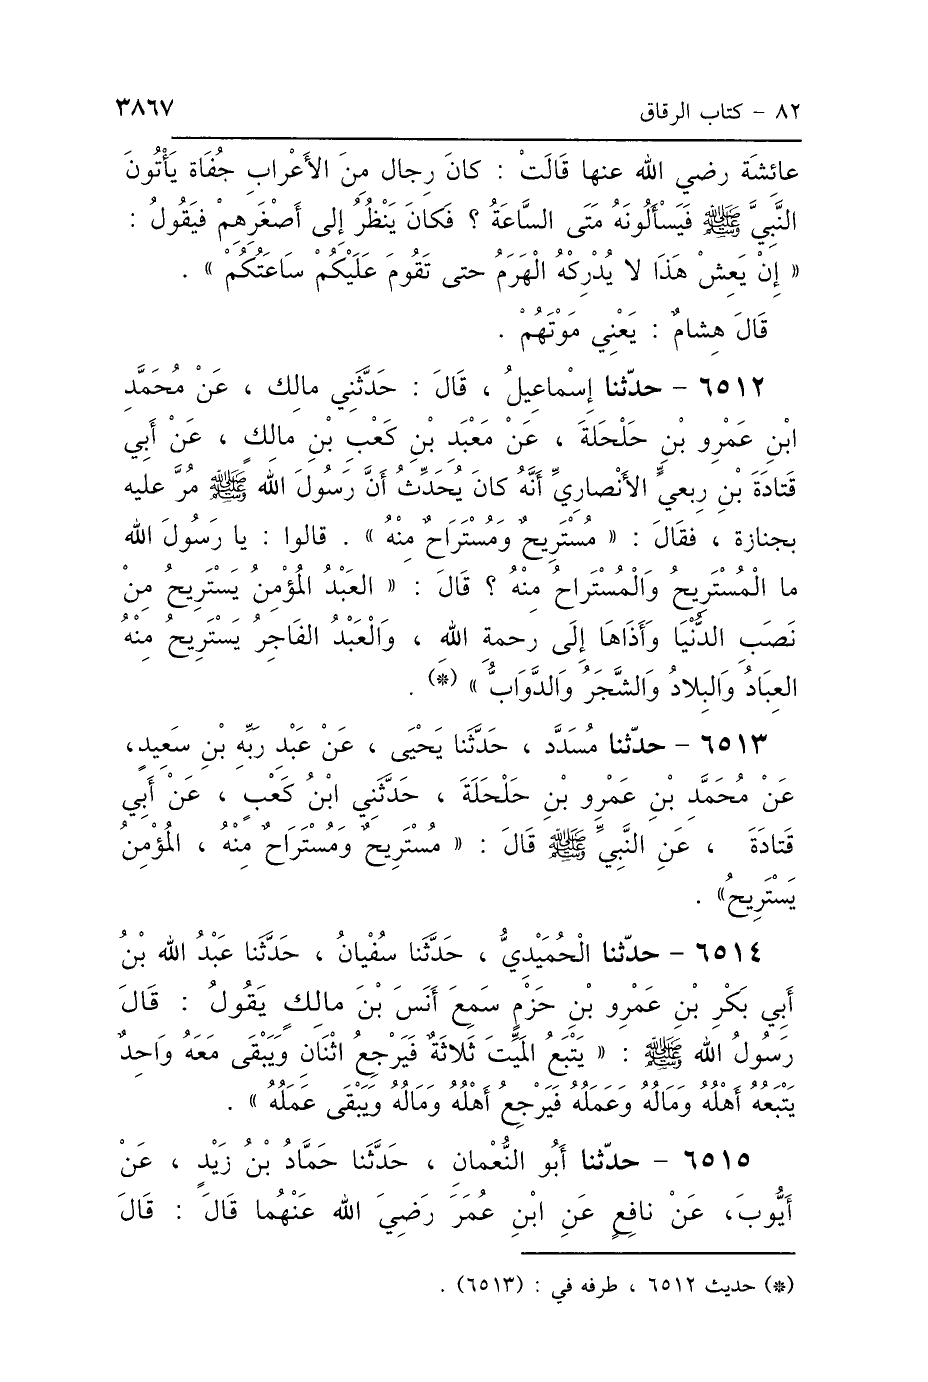 ٨٢ - كتاب الرقاق ٣٨٦٧
عائشَة رضي الله عنها قَالَتْ : كانَ رِجال مِنَ الأَعْرابِ جُفَاة يَأْتُونَ
النَّبِيَّ ﷺ فَيَسْأَلُونَهُ مَتَى السَّاعَةُ ؟ فَكانَ يَنْظُرُ إلى أَصْغَرِهِمْ فيَقُولُ :
« إِنْ يَعِشْ هَذَا لا يُدْرِكْهُ الْهَرَمُ حتى تَقُومَ عَلَيْكُمْ سَاعَتُكُمْ » .
قَالَ هِشامٌ : يَعْنِي مَوْتَهُمْ .
٦٥١٢ - حدّثنا إسْماعيلُ ، قَالَ : حَدَّثَنِي مالك ، عَنْ مُحَمَّدِ
ابْنِ عَمْرِو بْنِ حَلْحَلَةَ ، عَنْ مَعْبَدِ بْنِ كَعْبِ بْنِ مالِكٍ ، عَنْ أَبي
قَتادَةَ بْنِ رِبعيٍّ الأَنْصاريِّ أَنَّهُ كانَ يُحَدِّثُ أَنَّ رَسُولَ الله ﷺ مُرَّ عليه
بجنازة ، فقَالَ : « مُسْتَرِيحٌ ومُسْتَرَاحٌ مِنْهُ » . قالوا : يا رَسُولَ الله
ما الْمُسْتَرِيحُ وَالْمُسْتَراحُ مِنْهُ ؟ قَالَ : « العَبْدُ الْمُؤْمِنُ يَسْتَرِيحُ مِنْ
نَصَبِ الدُّنْيَا وَأَذَاهَا إِلَى رحمةِ الله ، وَالْعَبْدُ الفَاجِرُ يَسْتَرِيحُ مِنْهُ
العِبَادُ وَالبِلادُ وَالشَّجَرُ وَالدَّوَابُّ » (*) .
٦٥١٣ - حدّثنا مُسَدَّد ، حَدَّثَنا يَحْيَى ، عَنْ عَبْدِ رَبِّهِ بْنِ سَعِيدٍ،
عَنْ مُحَمَّدِ بْنِ عَمْرِو بْنِ حَلْحَلَةَ ، حَدَّثَنِي ابْنُ كَعْبٍ ، عَنْ أَبي
قَتادَةَ ، عَنِ النَّبيِّ ﷺ قَالَ : « مُسْتَرِيحٌ وَمُسْتَراحٌ مِنْهُ ، الْمُؤْمِنُ
يَسْتَرِيحُ» .
٦٥١٤ - حدّثنا الْحُمَيْدِيُّ ، حَدَّثَنا سُفْيانُ ، حَدَّثَنا عَبْدُ الله بْنُ
أَبي بَكْرِ بْنِ عَمْرِو بْنِ حَزْمٍ سَمِعَ أَنَسَ بْنَ مالِكٍ يَقُولُ : قَالَ
رَسُولُ الله ﷺ : « يَتْبَعُ الْمَيِّتَ ثَلاثَةٌ فَيَرْجِعُ اثْنَانِ وَيَبْقَى مَعَهُ وَاحِدٌ
يَتْبَعُهُ أَهْلُهُ وَمَالُهُ وَعَمَلُهُ فَيَرْجِعُ أَهْلُهُ وَمَالُهُ وَيَبْقَى عَمَلُهُ » .
٦٥١٥ - حدّثنا أَبُو النُّعْمانِ ، حَدَّثَنا حَمَّادُ بْنُ زَيْدٍ ، عَنْ
أَيُّوبَ، عَنْ نافِعٍ عَنِ ابْنِ عُمَرَ رَضِيَ الله عَنْهُما قَالَ : قَالَ
(*) حديث ٦٥١٢ ، طرفه في : (٦٥١٣) .